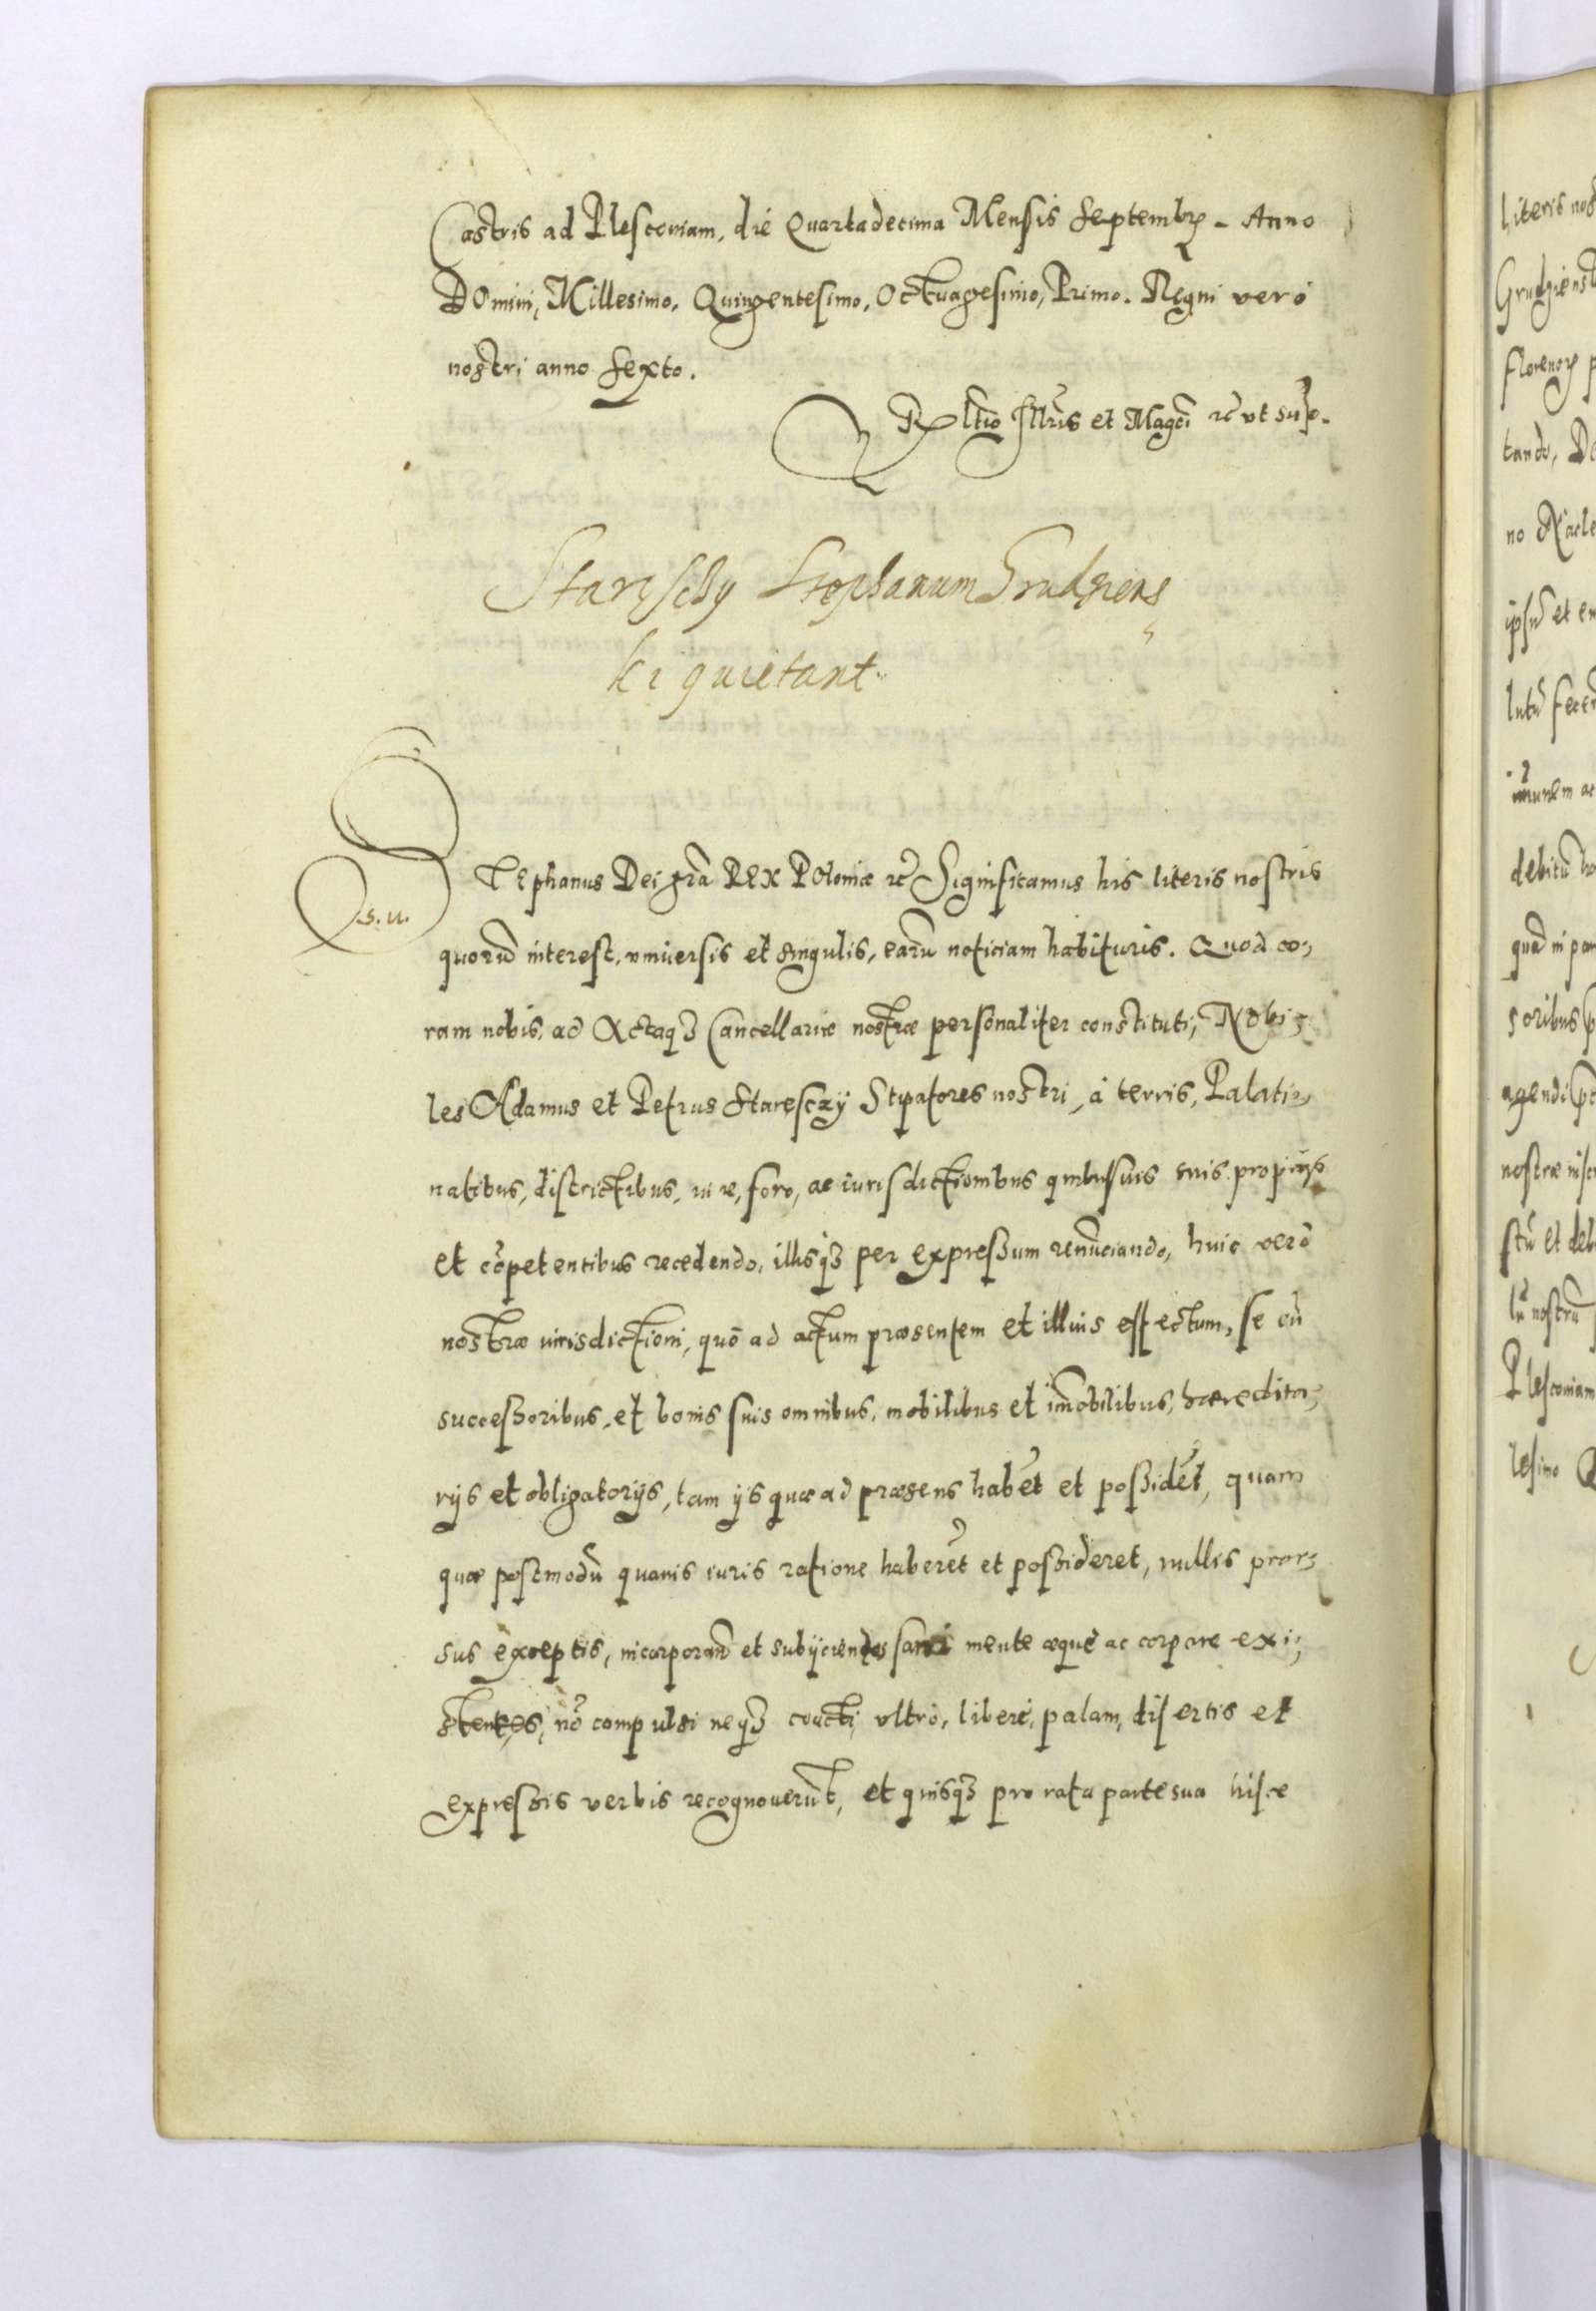 Castris ad Plescoviam, die Quartadecima Mensis Septembrꝭ - Anno
DOmini, Millesimo, Quingentesimo, Octuagesimo, Primo. Regni verò
nostri anno Sexto.
Rltio Illris et Magci rc̃ vt sup̃.
Starzschy Stephanum Grudziens
ki quietant.
STEphanus Dei gr̃a REX POloniæ rc̃ Significamus his literis nostris
.s.u.
quorũ interest, vniuersis et singulis, earũ noticiam habituris. Quod co,
ram nobis, ac Actaqꝫ Cancellariæ nostræ personaliter constituti, Nobi,
les Adamus et Petrus Staresczy Stipatores nostri, à terris, Palati,
natibus, districtibus, iure, foro, ac iurisdictionibus quibusuis suis proprijs
et cõpetentibus recedendo, illisqꝫ per expreßum renũciando, huic verò
nostræ iurisdictioni, quõ ad actum præsentem et illius effectum, se cũ
succeßoribus, et bonis suis omnibus, mobilibus et im̃obilibus, hæredita,
rijs et obligatorijs, tam ijs quæ ad præsens habẽt et poßidẽt, quam
quæ postmodũ quauis iuris ratione haberẽt et poßideret, nullis pror,
sus exceptis, incorporan̄ et subijciendes sani mente æquè ac corpore exi,
stentes, nõ compulsi neqꝫ coacti, vltrò, liberè, palam, disertis et
expreßis verbis recognouerũt, et quisqꝫ pro rata parte sua hisce
literis nos
Grudziensk
florenoꝝ p
tando, De
ipsũ et
lutũ fecer
debitũ
quod in
soribus p
agendi
nostræ
stũ et deb
lũ nostrũ
Plescouiam
lesimo Q